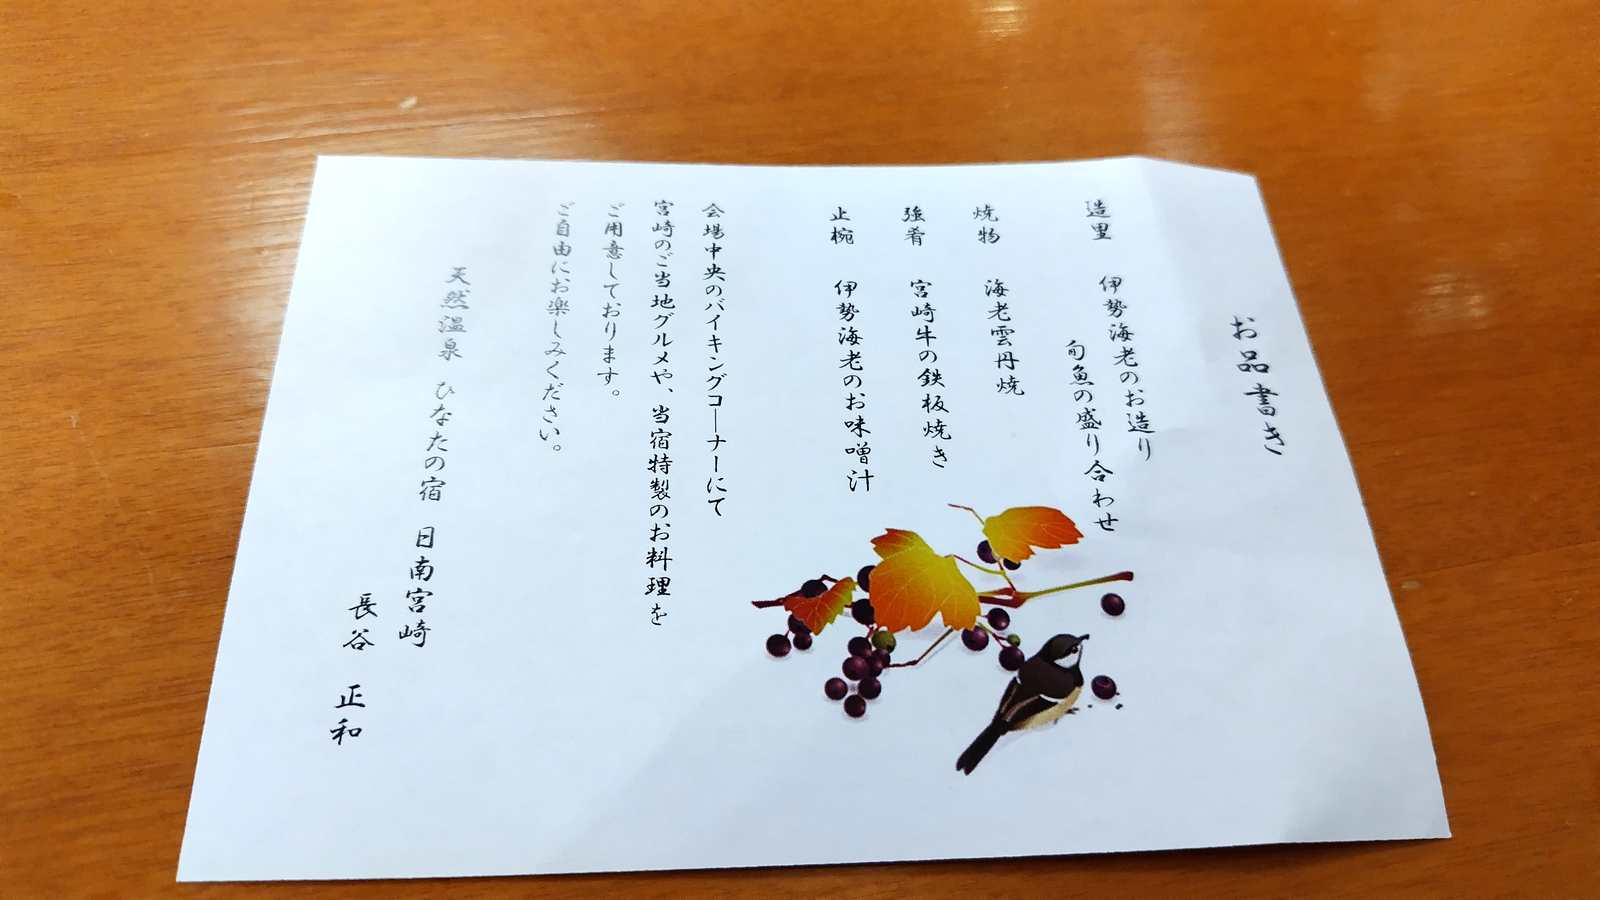 お品書き
造里 伊勢海老のお造り
旬魚の盛り合わせ
焼物 海老雲丹焼
強肴 宮崎牛の鉄板焼き
止椀 伊勢海老のお味噌汁
会場中央のバイキングコーナーにて
宮崎のご当地グルメや、当宿特製のお料理を
ご用意しております。
ご自由にお楽しみください。
天然温泉 ひなたの宿 日南宮崎
長谷 正和